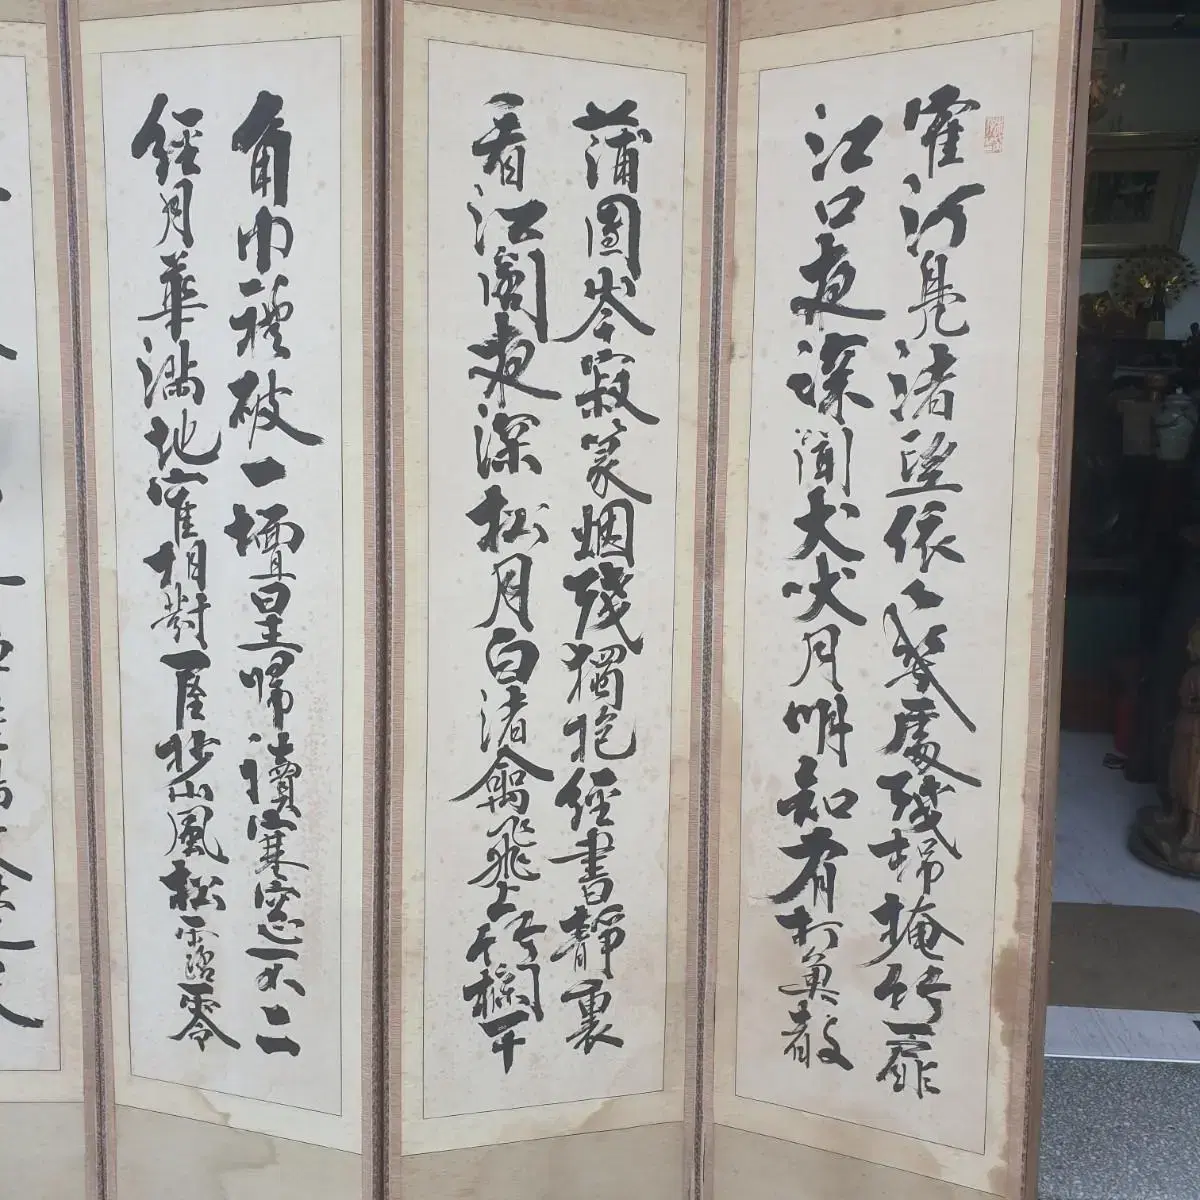 寉汀鳧渚望依々處殘掩竹扉
江口夜深聞犬吠月明知有打魚歸
蒲團岑寂篆烟殘獨抱經書靜裏
看江閣夜深松月白渚禽飛上竹欄干
角巾禮破一壇星歸讀寒窓不二
經月華滿地寉相對一風松露零